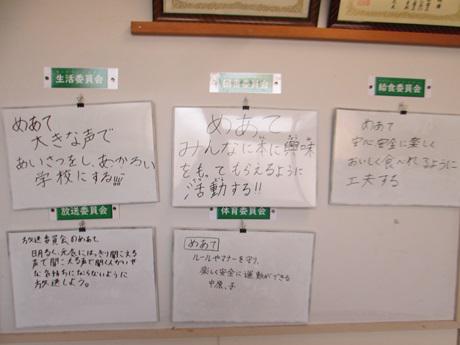 生活委員会
めあて
大きな声で
あいさつをし、あかるい
学校にする!!!
図書委員会
めあて
みんなに本に興味
をもってもらえるように
活動する!!
給食委員会
めあて
安心安全に楽しく
おいしく食べれるように
工夫する
放送委員会
放送委員会のめあて
明るく、元気にはっきり聞こえる
声で聞こえる声で聞く人がいや
な気持ちにならないように
放送しよう。
体育委員会
めあて
ルールやマナーを守り、
楽しく安全に運動ができる
中原っ子